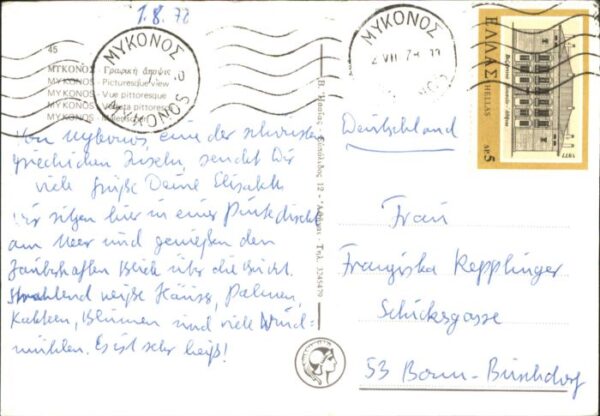 1.8.78
45
ΜΥΚΟΝΟΣ - Γραφική άποψις
MYKONOS - Picturesque view
MYKONOS - Vue pittoresque
MYKONOS - Veduta pittoresca
MYKONOS
ΜΥΚΟΝΟΣ
MYKONOS
Von Mykonos, eine der schönsten
griechischen Inseln, sendet Dir
viele Grüße Deine Elisabeth
Wir sitzen hier in einer direkt
am Meer und genießen den
zauberhaften Blick über die Bucht.
Strahlend weiße Häuser, Palmen,
Kakteen, Blumen und viele Wind-
mühlen. Es ist sehr heiß!
12 - Τηλ. 3245479
ΜΥΚΟΝΟΣ
VII 78
ΕΛΛΑΣ HELLAS
1977
ΔΡ 5
Deutschland
Frau
Franziska Kepplinger
Schicksgasse
53 Bonn-Buschdorf